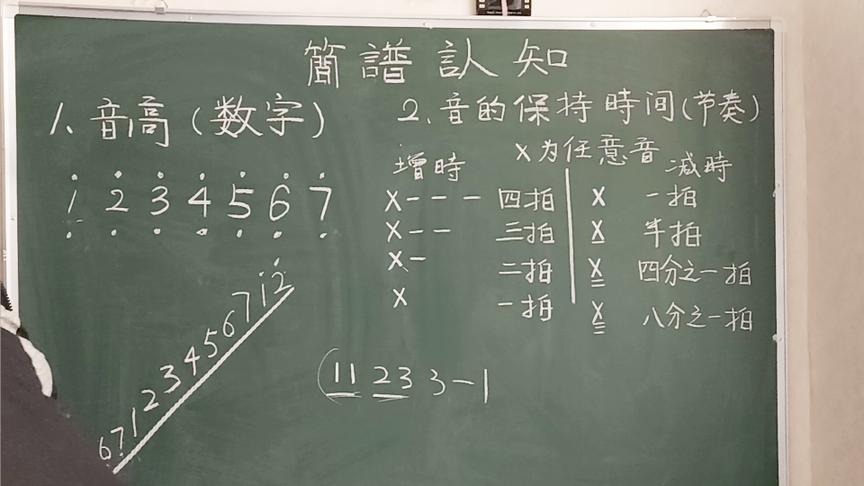 簡譜認知
1、音高（数字）
1 2 3 4 5 6 7
6 7 1 2 3 4 5 6 7 1 2
2、音的保持時间(节奏)
X为任意音
增時
X - - - 四拍
X - - 三拍
X - 二拍
X 一拍
减時
X 一拍
X 半拍
X 四分之一拍
X 八分之一拍
(11 23 3 - |